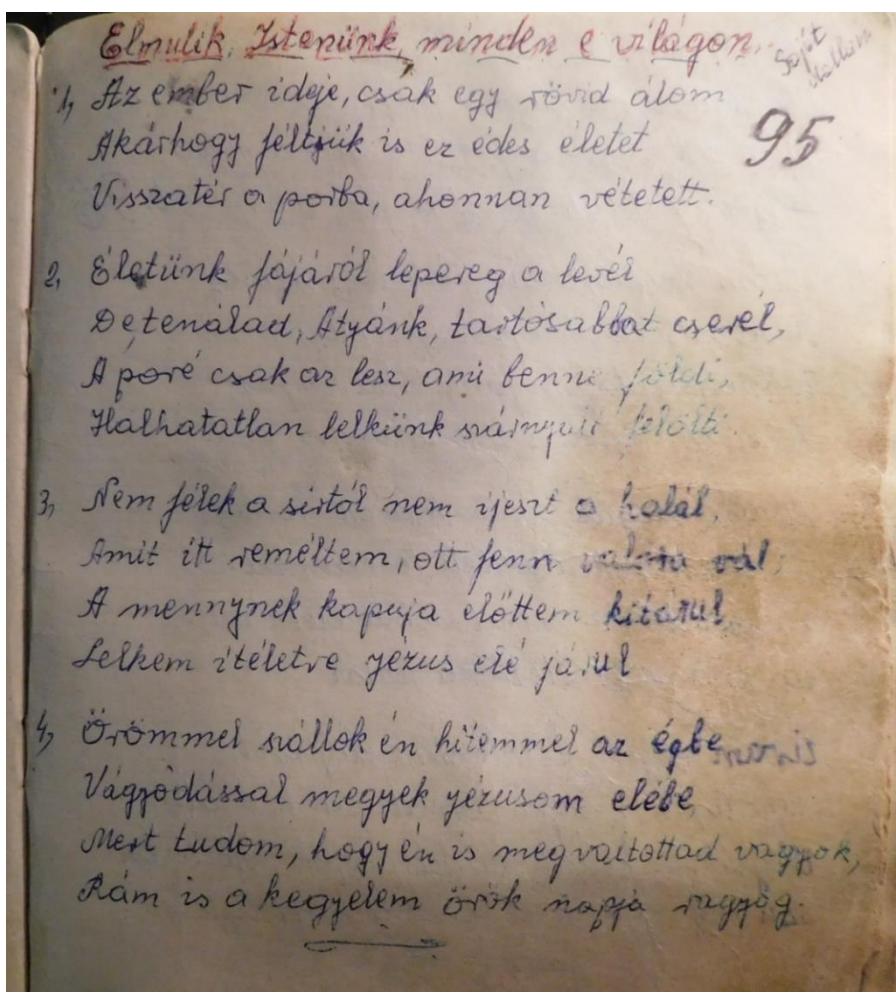 Elmulik, Istenünk, minden e világon.
Saját
95
1, Az ember ideje, csak egy rövid álom
Akárhogy féltjük is ez édes életet
Visszatér a porba, ahonnan vétetett.
2, Életünk fájáról lepereg a levél
De tenálad, Atyánk, tartósabbat cserél,
A poré csak az lesz, ami benne földi,
Halhatatlan lelkünk szárnyait felölti.
3, Nem félek a sirtól nem ijeszt a halál,
Amit itt reméltem, ott fenn valóra vál;
A mennynek kapuja előttem kitárul,
Lelkem itéletre Jézus elé járul
4, Örömmel szállok én hitemmel az égbe
Vágyódással megyek Jézusom elébe
Mert tudom, hogy én is megváltottad vagyok,
Rám is a kegyelem örök napja ragyog.